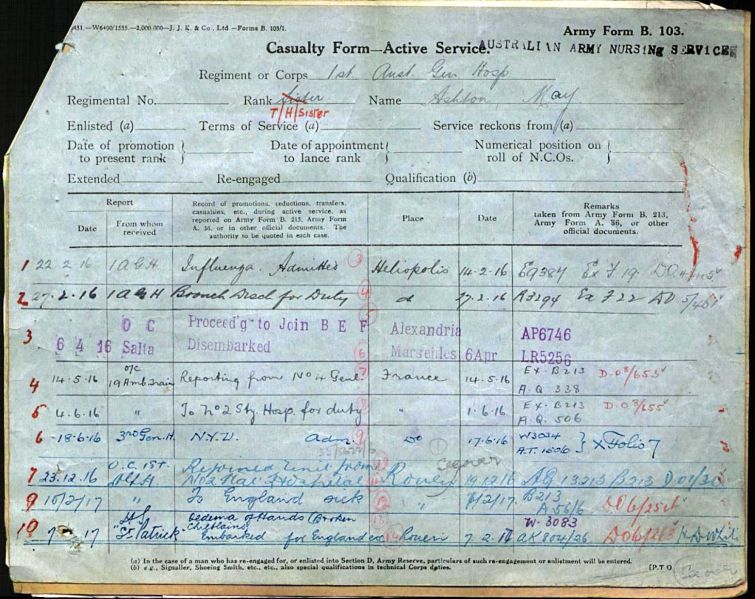 431.—W6400/1555.—2,000,000—J. J. K. & Co., Ltd.—Forms B. 103/1.
Army Form B. 103.
Casualty Form—Active Service.
AUSTRALIAN ARMY NURSING SERVICE
Regiment or Corps 1st Aust Gen Hosp
Regimental No. Rank Sister Name Ashton, May
T/H/Sister
Enlisted (a) Terms of Service (a) Service reckons from (a)
Date of promotion to present rank Date of appointment to lance rank Numerical position on roll of N.C.Os.
Extended Re-engaged Qualification (b)
Report
Date From whom received
Record of promotions, reductions, transfers, casualties, etc., during active service, as reported on Army Form B. 213, Army Form A. 36, or in other official documents. The authority to be quoted in each case.
Place
Date
Remarks
taken from Army Form B. 213, Army Form A. 36, or other official documents.
1 22 2 16 1 AGH Influenza. Admitted 3 Heliopolis 14.2.16 Eg387 Ex F 19
2 27.2.16 1 AGH Bronch Disch for Duty 4 do 27.2.16 R3294 Ex F 22
3 6 4 16 O C Salta Proceed'g to Join B E F Alexandria AP6746
Disembarked 6 Marseilles 6 Apr LR5256
4 14.5.16 o/c 19 Amb Train Reporting from No 4 Genl. 7 France 14.5.16 Ex. B213 D.O 8/655
A.Q 338
5 4.6.16 " To No 2 Sty. Hosp. for duty 8 " 1.6.16 Ex. B213 D.O 8/655
A.Q. 506
6 -18.6.16 3rd Gen. H. N.Y.D. Adm. 9 Do 17.6.16 W3034
A.T. 1606 } X Folio 7
7 23.12.16 O.C. 1st. A.G.H. Rejoined Unit from Rouen 19.12.16 AG 13213 B213
9 10/2/17 " To England sick " B213
A 56/6
10 7 17 H.S. St. Patrick Oedema of Hands (Broken Chilblains
Embarked for England Rouen 7.2.17 W.3083
AK 804/26
(a) In the case of a man who has re-engaged for, or enlisted into Section D, Army Reserve, particulars of such re-engagement or enlistment will be entered.
(b) e.g., Signaller, Shoeing Smith, etc., etc., also special qualifications in technical Corps duties.
[P.T.O